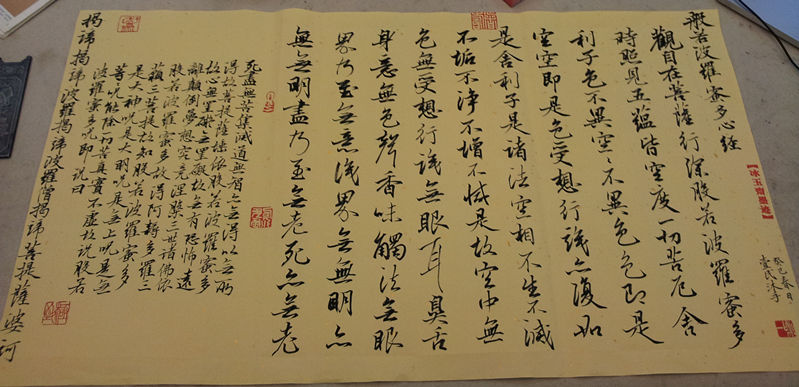 癸巳春月
【冰玉齋墨迹】
般若波羅蜜多心經
觀自在菩薩行深般若波羅蜜多
時照見五蘊皆空度一切苦厄舍
利子色不異空〻不異色色即是
空空即是色受想行識亦復如
是舍利子是諸法空相不生不滅
不垢不淨不增不減是故空中無
色無受想行識無眼耳鼻舌
身意無色聲香味觸法無眼
界乃至無意識界無無明亦
無無明盡乃至無老死亦無老
死盡無苦集滅道無智亦無得以無所
得故菩提薩埵依般若波羅蜜多
故心無罣礙無罣礙故無有恐怖遠
離顛倒夢想究竟涅槃三世諸佛依
般若波羅蜜多故得阿耨多羅三
藐三菩提故知般若波羅蜜多
是大神咒是大明咒是無上咒是無
等咒能除一切苦真實不虛故說般若
波羅蜜多咒即說咒曰
揭諦揭諦波羅揭諦波羅僧揭諦菩提薩婆訶